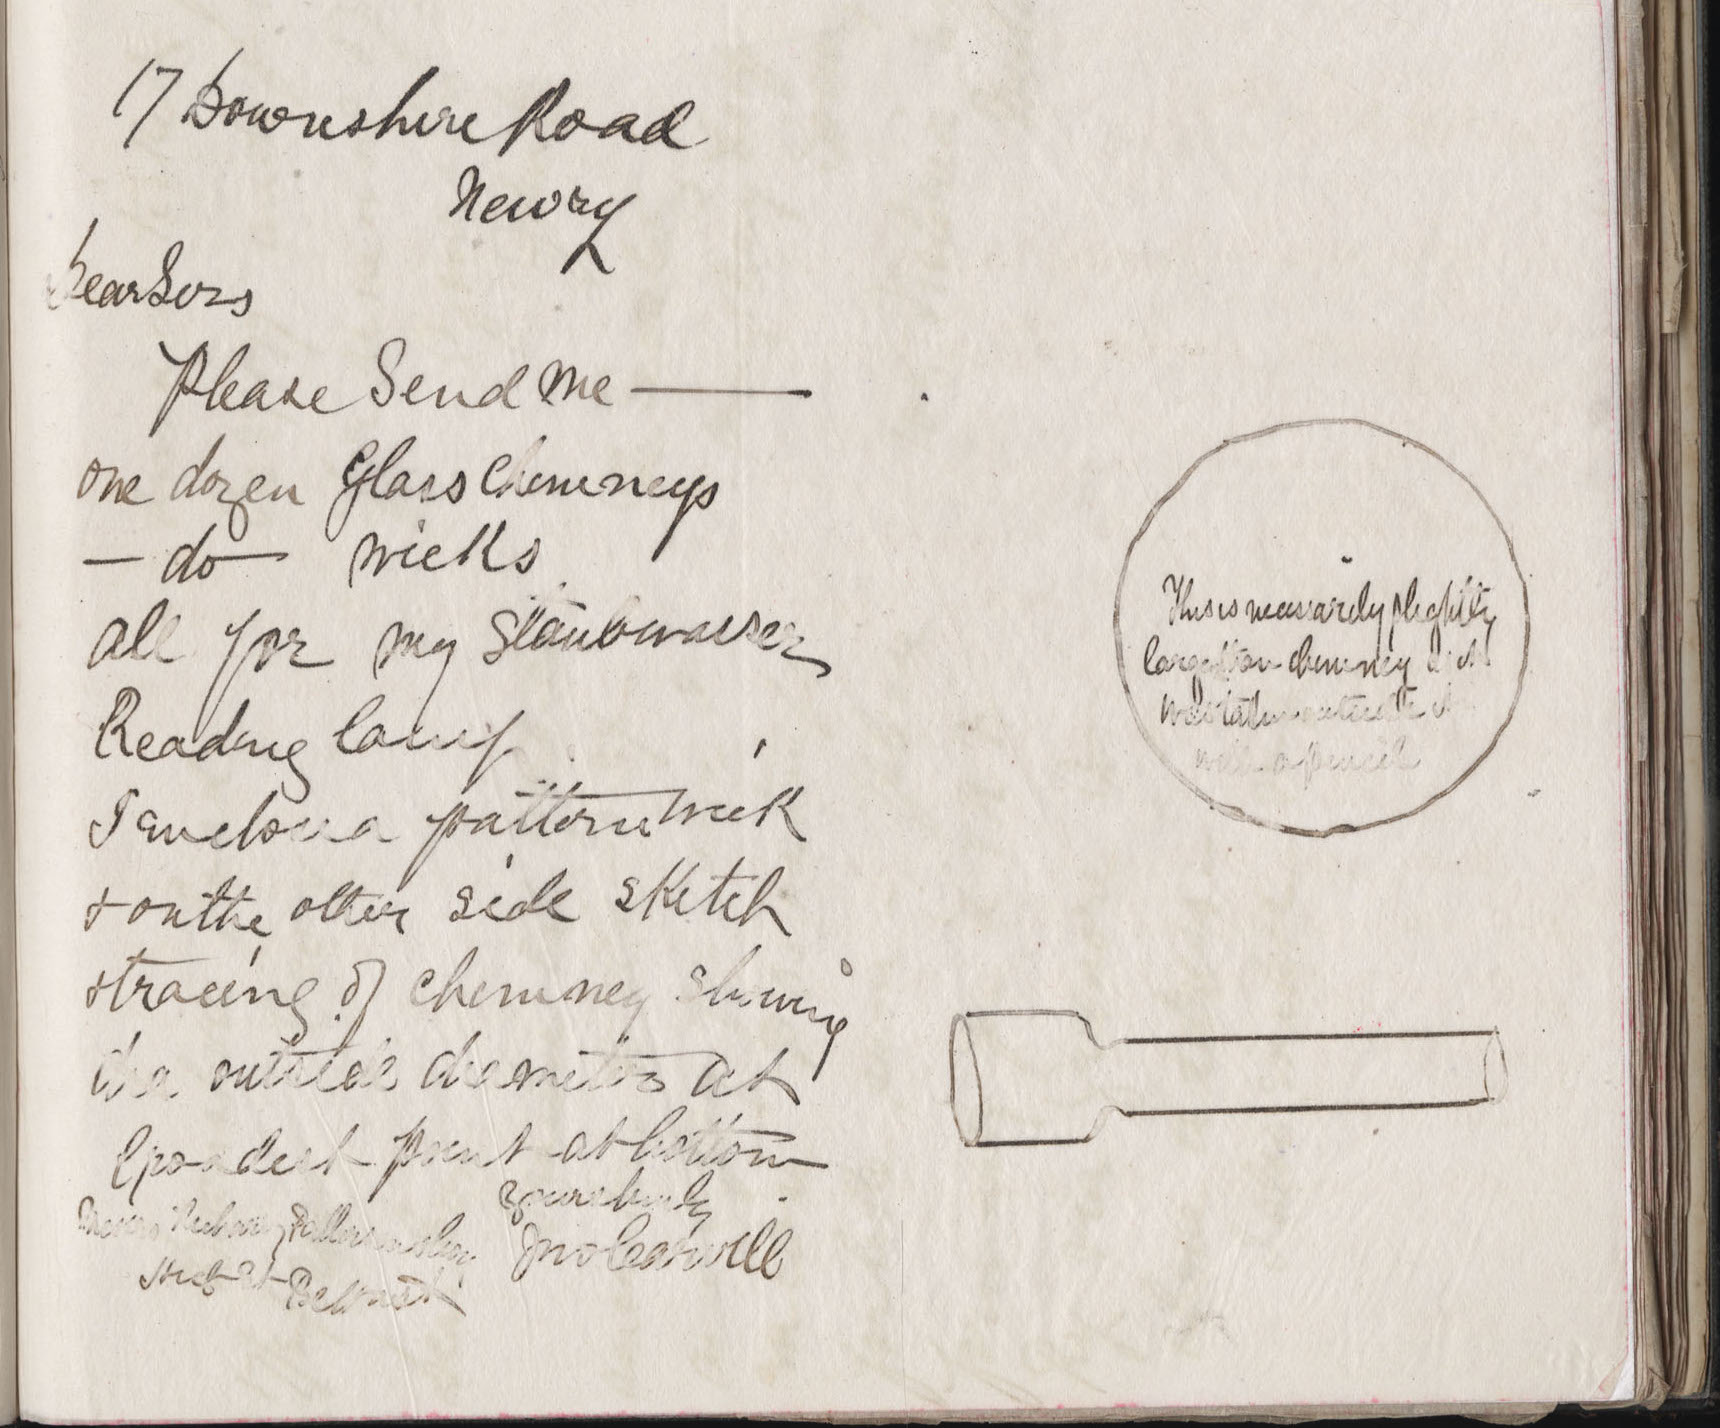 17 Downshire Road
Newry
Dear Sirs
Please Send me —
one dozen Glass Chimneys
— do — wicks
all for my Staubwasser
Reading lamp
I enclose a pattern wick
& on the other side sketch
& tracing of chimney showing
the outside diameter at
broadest point at bottom
yours truly
Jno Cardwill
Messrs Richard Patterson & Co
High St Belfast
This is necessarily slightly
larger than chimney as it
was taken outside it
with a pencil